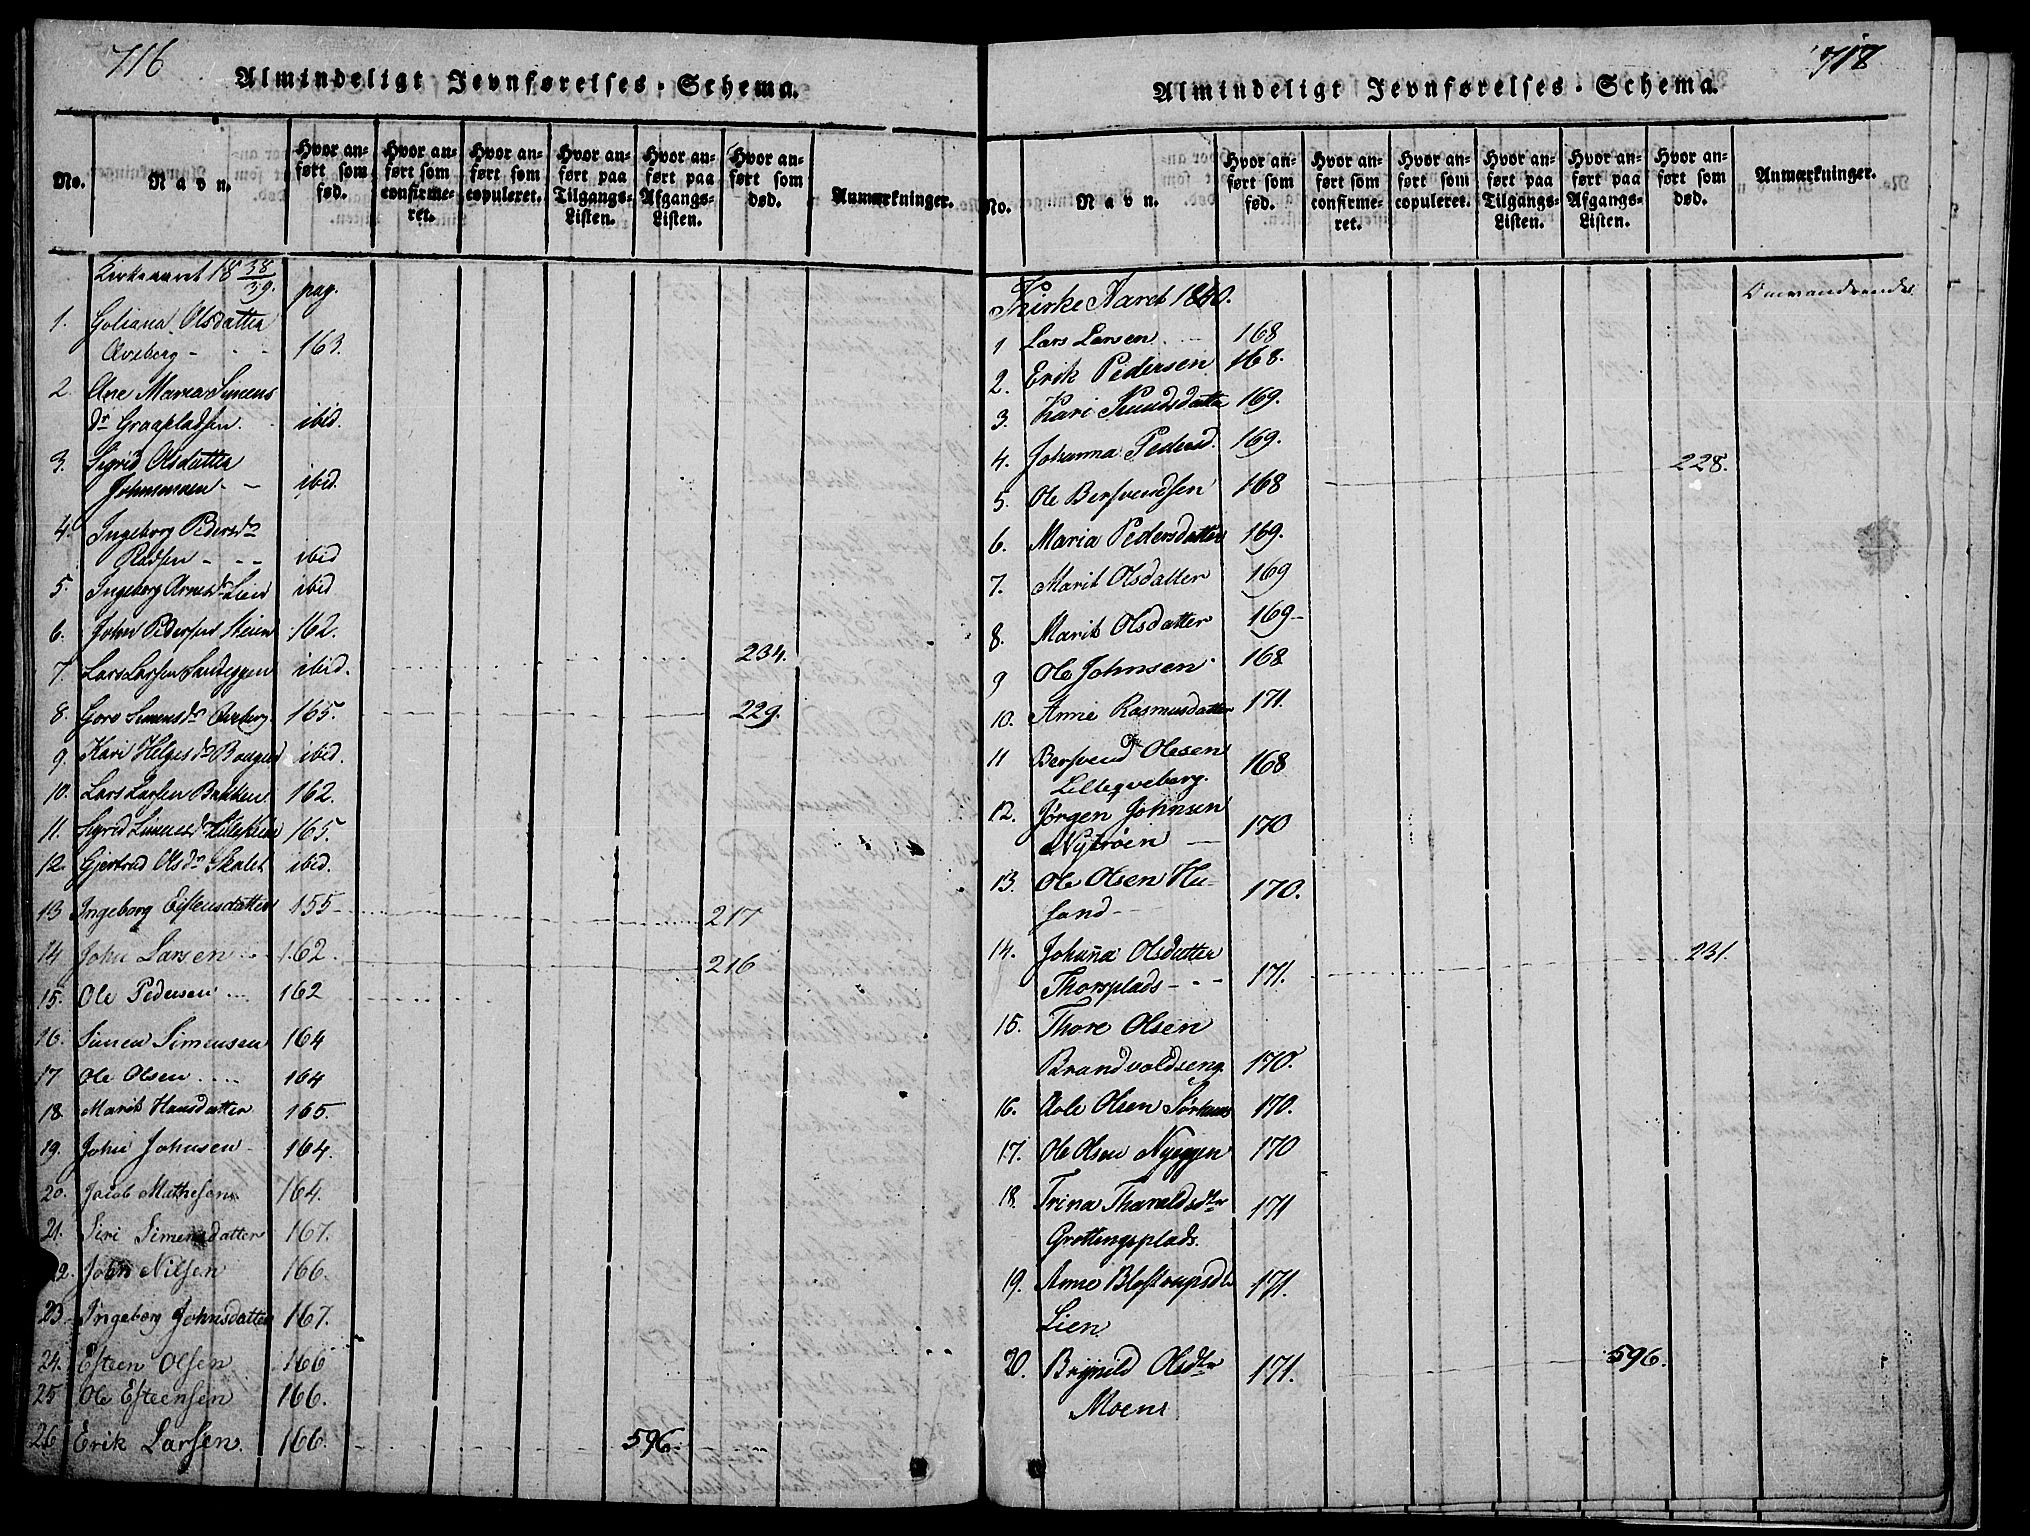 716
Almindeligt Jevnførelses-Schema.
No.
Navn.
Hvor anført som fød.
Hvor anført som confirmeret.
Hvor anført som copuleret.
Hvor anført paa Tilgangs-Listen.
Hvor anført paa Afgangs-Listen.
Hvor anført som død.
Anmærkninger.
Kirkeaaret 18 38/39. pag.
1. Goliana Olsdatter
Aveberg - - - 163.
2. Ane Maria Simens
dr Graapladsen. ibid.
3. Sigrid Olsdatter
- - ibid.
4. Ingeborg Pedersdr
Pladsen - - - ibid
5. Ingeborg Arnesdr Lien ibid
6. John Pedersen Steien 162.
7. Lars Larsen Sandeggen ibid. 234.
8. Goro Simensdr Aveberg. 165. 229.
9. Kari Helgesdr ibid.
10. Lars Larsen Bakken 162.
11. Sigrid Simensdr 165.
12. Gjertrud Olsdr ibid.
13 Ingeborg Estensdatter 155 217
14 John Larsen 162. 216
15. Ole Pedersen 162
16. Simen Simensen 164
17 Ole Olsen 164
18. Marit Hansdatter 165
19. John Johnsen 164.
20. Jacob Mathesen 164.
21. Siri Simensdatter 167.
22. John Nilsen 166.
23. Ingeborg Johnsdatter 167.
24. Esteen Olsen 166
25 Ole Esteensen 166.
26 Erik Larsen. 166. 596.
717
Almindeligt Jevnførelses-Schema.
No.
Navn.
Hvor anført som fød.
Hvor anført som confirmeret.
Hvor anført som copuleret.
Hvor anført paa Tilgangs-Listen.
Hvor anført paa Afgangs-Listen.
Hvor anført som død.
Anmærkninger.
Kirke Aaret 1840. Omvandrende
1 Lars Larsen 168
2. Erik Pedersen 168.
3. Kari Knudsdatter 169.
4. Johanna Pedersd. 169.
5. Ole Bersvendsen 168 228.
6. Maria Pedersdatter 169.
7. Marit Olsdatter 169
8. Marit Olsdatter 169
9 Ole Johnsen 168
10. Anne Rasmusdatter 171.
11 Bersvend Olesen
Lilleqveberg. 168
12. Jørgen Johnsen
Nytrøen 170
13. Ole Olsen Hu-
sand 170.
14. Johanna Olsdatter 231.
Thorsplads - - - 171.
15. Thore Olsen
Brandvoldseng 170.
16. Aole Olsen Sørhuus 170.
17. Ole Olsen Nyeggen 170
18. Trina Tharaldsdtr 171
Grøttingsplads.
19. Anne 171.
Lien
20. Brynild Olsdtr 171. 596.
Moens